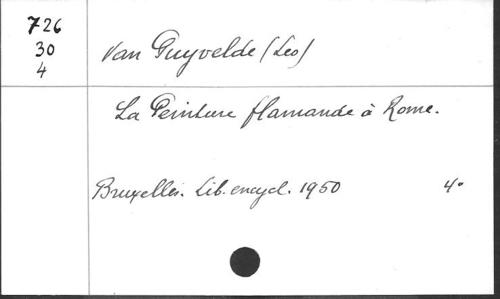 726
30
4
Van Puyvelde (Leo)
La Peinture flamande à Rome.
Bruxelles. Lib. encycl. 1950 4°